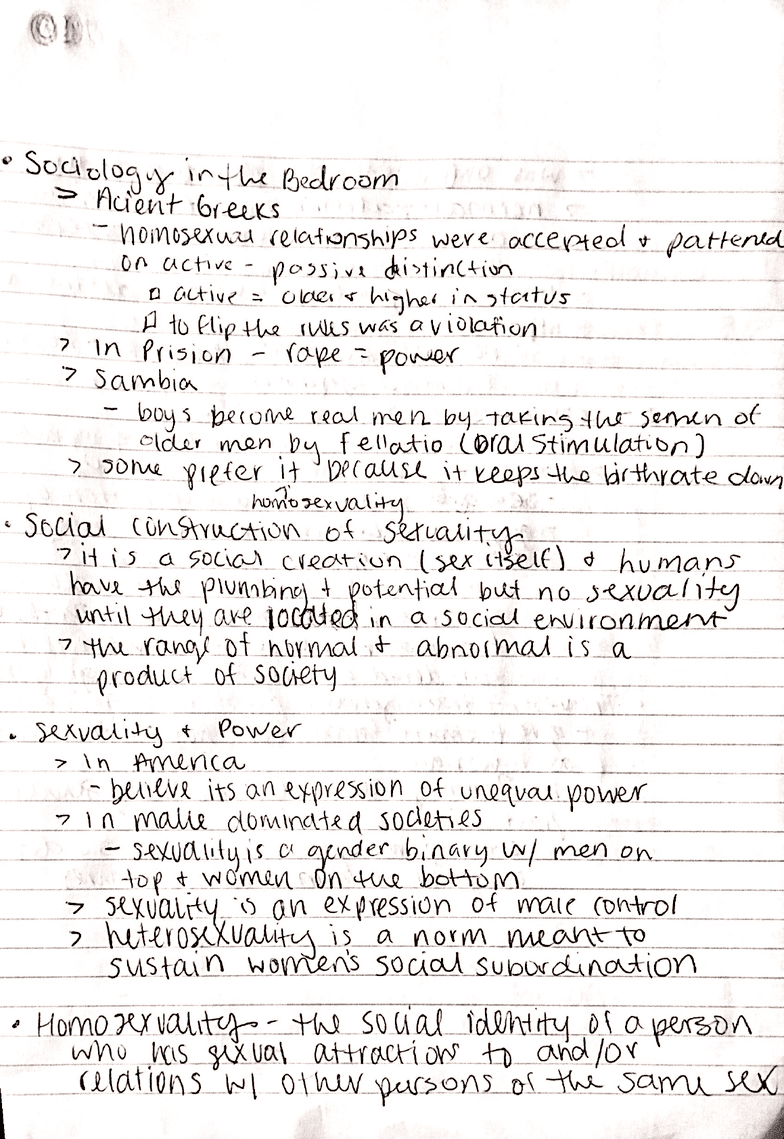 • Sociology in the Bedroom
> Acient Greeks
- homosexual relationships were accepted + pattened
on active - passive distinction
▫ active = older + higher in status
▫ to flip the rules was a violation
> In Prision - rape = power
> Sambia
- boys become real men by taking the semen of
older men by fellatio (oral Stimulation)
> some prefer it because it keeps the birthrate down
homosexuality
• Social construction of sexuality
> it is a social creation (sex itself) + humans
have the plumbing + potential but no sexuality
until they are located in a social environment
> the range of normal + abnormal is a
product of society
• Sexuality + Power
> In America
- believe its an expression of unequal power
> in male dominated societies
- sexuality is a gender binary w/ men on
top + women on the bottom
> sexuality is an expression of male control
> heterosexuality is a norm meant to
sustain women's social subordination
• Homosexuality - the social identity of a person
who has sexual attraction to and/or
relations w/ other persons of the same sex